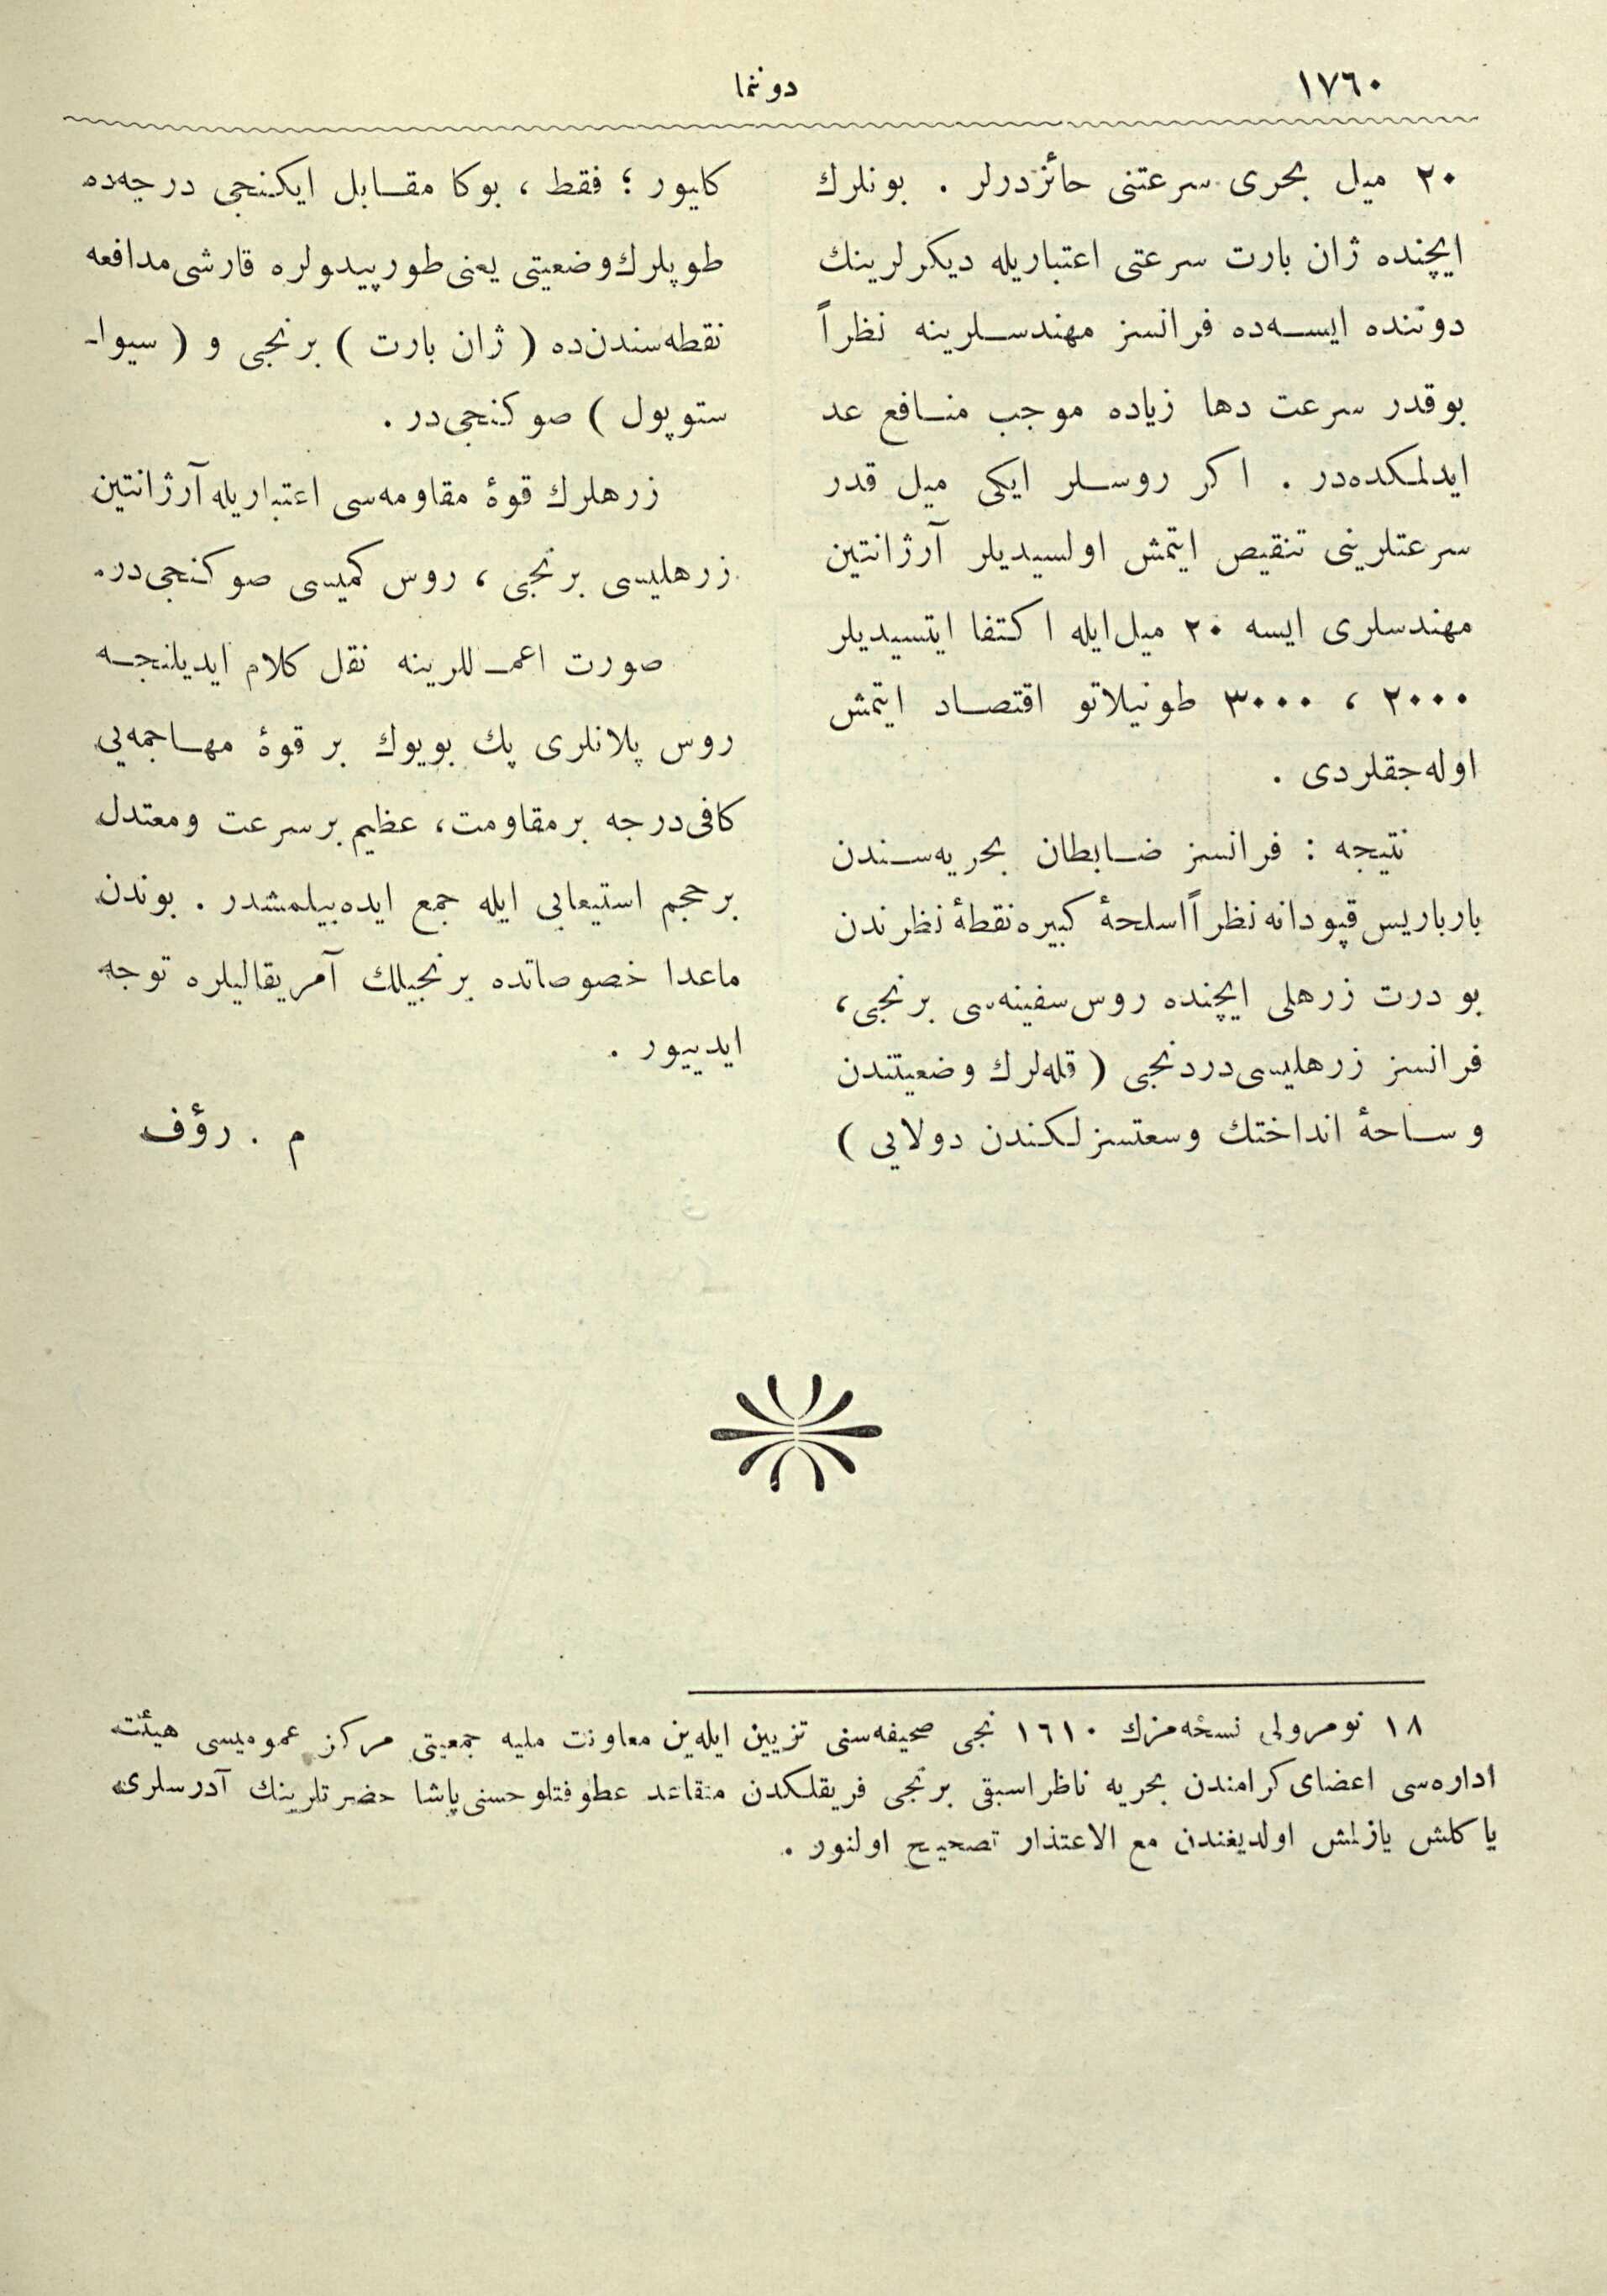 ١٧٦٠
دوننما
٢٠ میل بحری سرعتنی حائزدرلر . بونلرك
ایچنده ژان بارت سرعتی اعتباریله دیكرلرینك
دوننده ایسه‌ده فرانسز مهندسلرینه نظراً
بوقدر سرعت دها زیاده موجب منافع عد
ایدلمكده‌در . اكر روسلر ایكی میل قدر
سرعتلرینی تنقیص ایتمش اولسیدیلر آرژانتین
مهندسلری ایسه ٢٠ میل‌ایله اكتفا ایتسیدیلر
٢٠٠٠ ، ٣٠٠٠ طونیلاتو اقتصاد ایتمش
اوله‌جقلردی .
نتیجه : فرانسز ضابطان بحریه‌سندن
بارباریس قپودانه نظراً اسلحهٔ كبیره نقطهٔ نظرندن
بو درت زرهلی ایچنده روس سفینه‌سی برنجی،
فرانسز زرهلیسی دردنجی ( قله‌لرك وضعیتندن
وساحهٔ انداختك وسعتسزلكندن دولایی )
كلیور ؛ فقط ، بوكا مقابل ایكنجی درجه‌ده
طوپلرك وضعیتی یعنی طورپیدولره قارشی مدافعه
نقطه‌سندن‌ده ( ژان بارت ) برنجی و ( سیوا-
ستوپول ) صوكنجی‌در .
زرهلرك قوهٔ مقاومه‌سی اعتباریله آرژانتین
زرهلیسی برنجی ، روس كمیسی صوكنجی‌در.
صورت اعمـللرینه نقل كلام ایدیلنجه
روس پلانلری پك بویوك بر قوهٔ مهاجمه‌یی
كافی درجه بر مقاومت، عظیم بر سرعت ومعتدل
بر حجم استیعابی ایله جمع ایده‌بیلمشدر . بوندن
ماعدا خصوصاتده برنجیلك آمریقالیلره توجه
ایدییور .
م . رؤف
١٨ نومرولی نسخه‌مزك ١٦١٠ نجی صحیفه‌سنی تزیین ایله‌ین معاونت ملیه جمعیتی مركز عمومیسی هیئت
اداره‌سی اعضای كرامندن بحریه ناظر اسبقی برنجی فریقلكدن متقاعد عطوفتلو حسنی پاشا حضرتلرینك آدرسلری
یاكلش یازلمش اولدیغندن مع الاعتذار تصحیح اولنور .